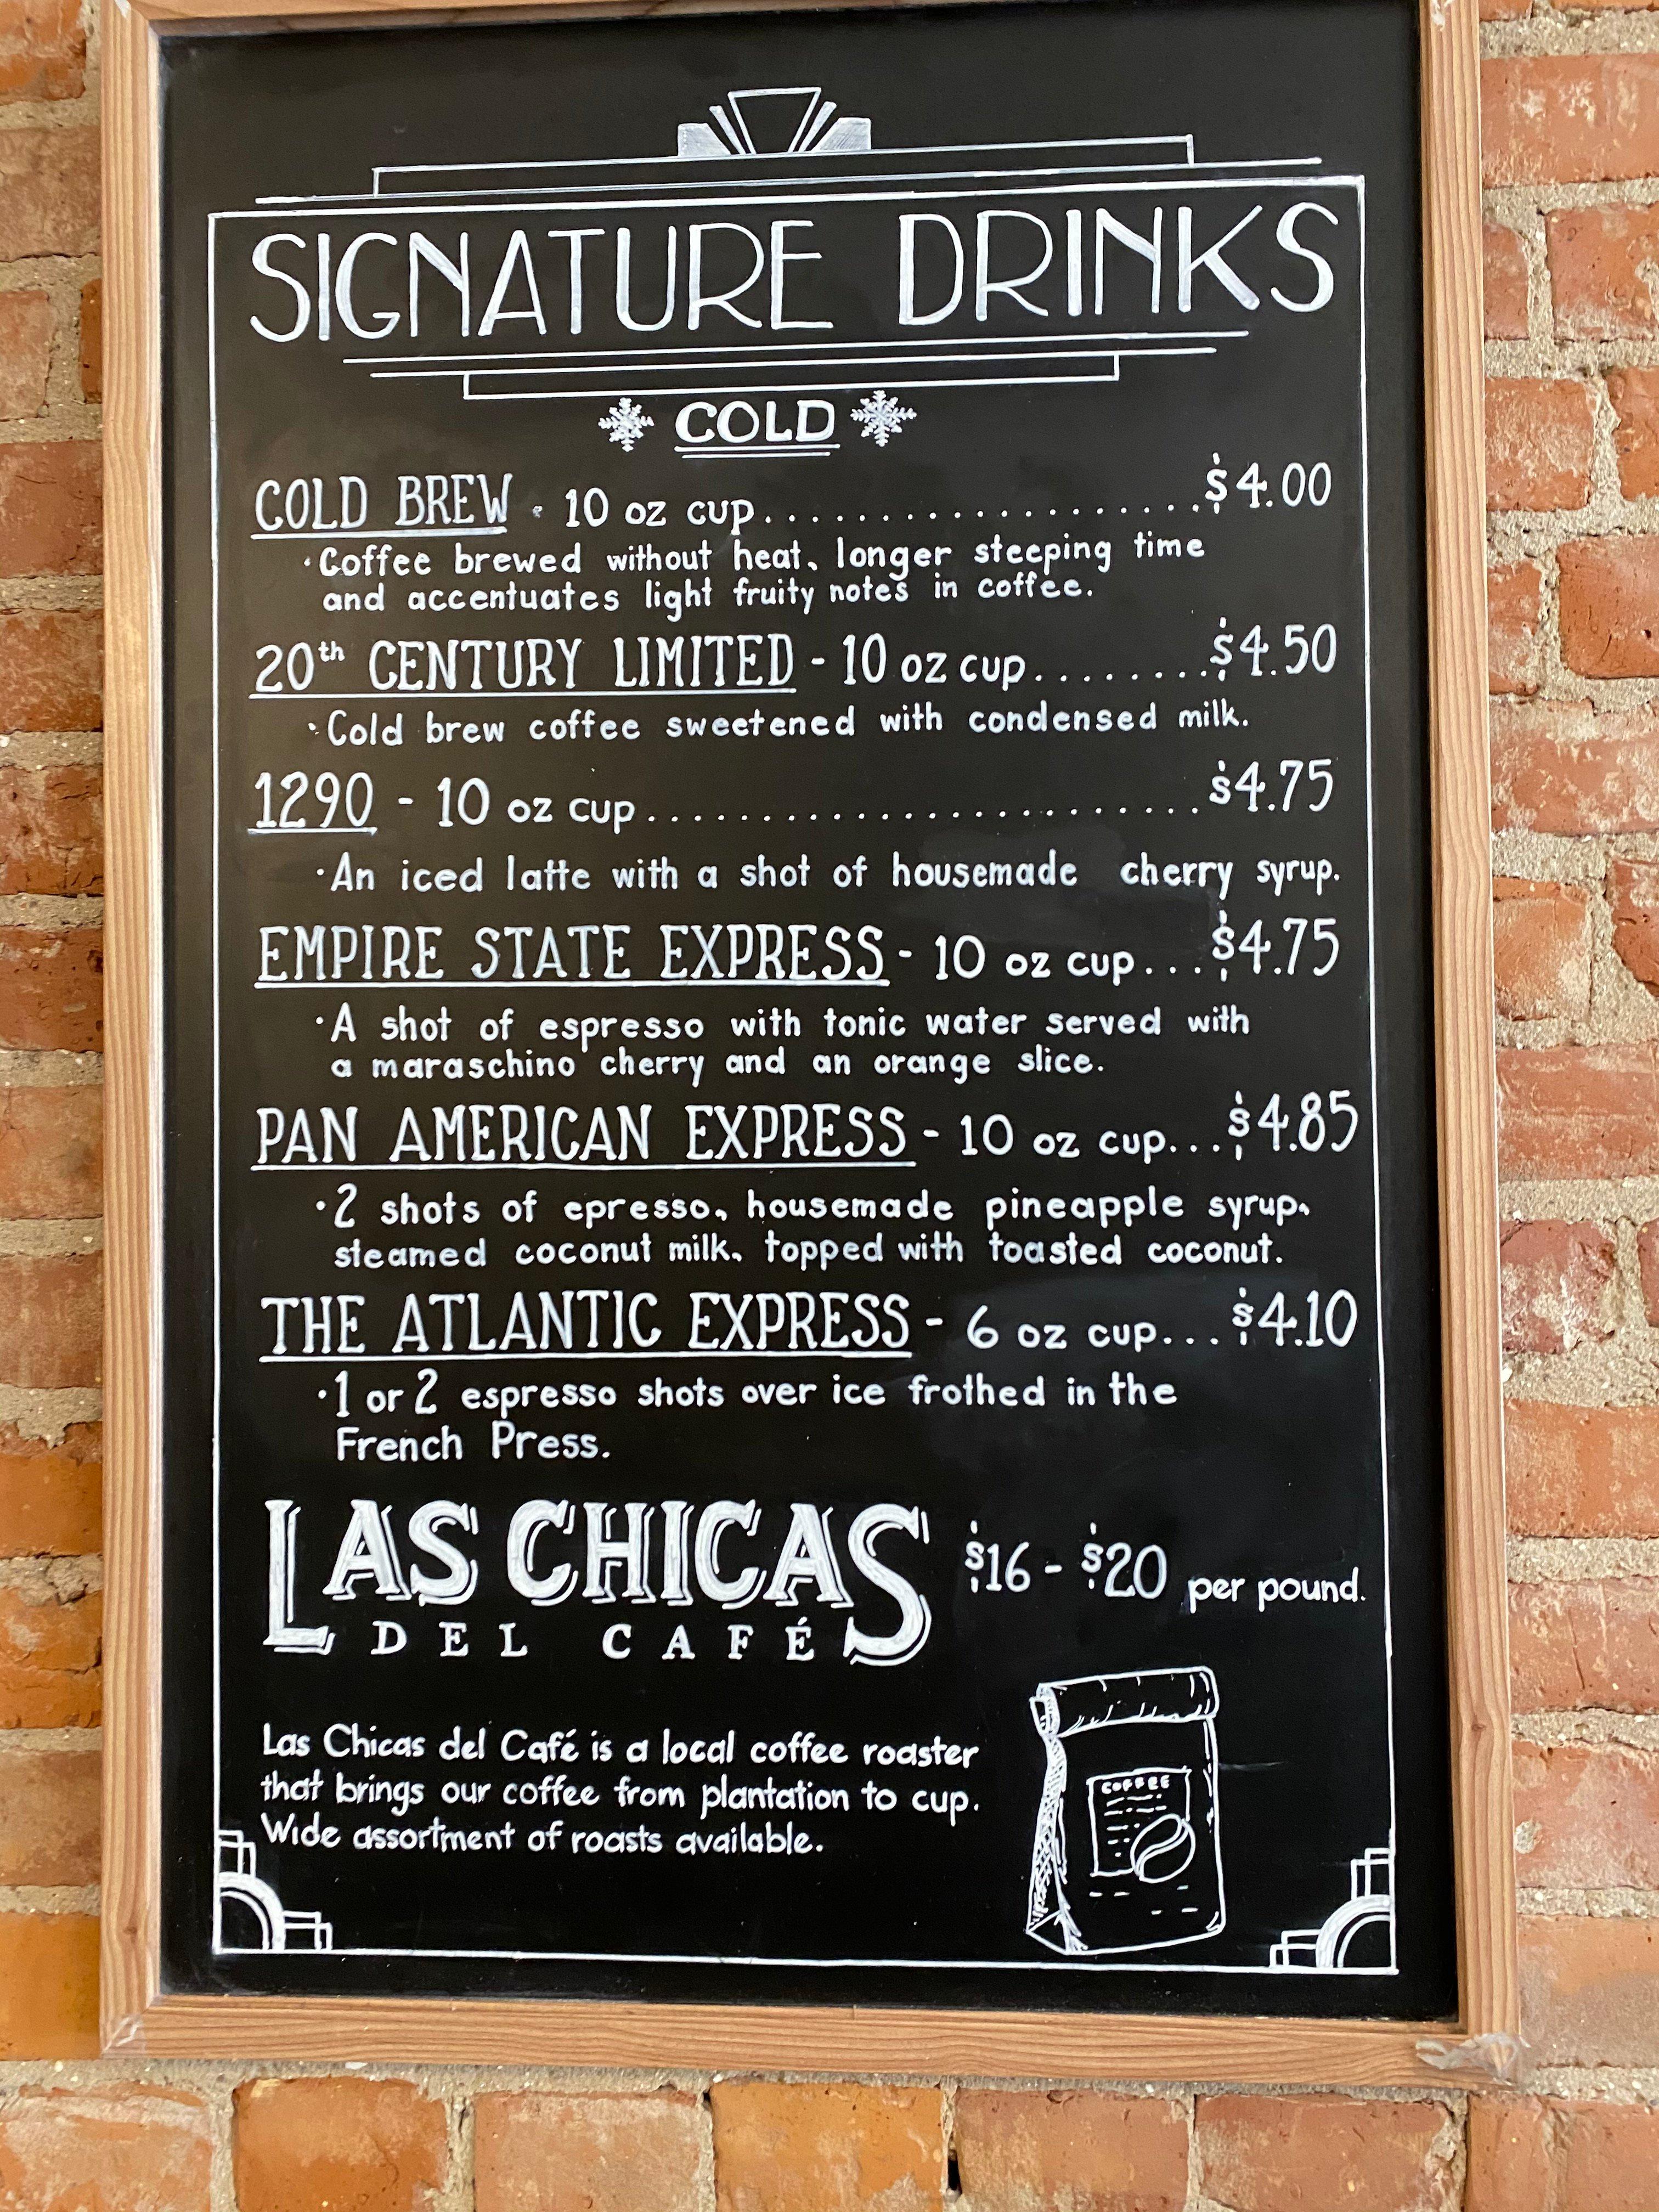 SIGNATURE DRINKS
COLD
COLD BREW - 10 oz cup....................$4.00
·Coffee brewed without heat, longer steeping time
and accentuates light fruity notes in coffee.
20th CENTURY LIMITED - 10 oz cup........$4.50
·Cold brew coffee sweetened with condensed milk.
1290 - 10 oz cup........................$4.75
·An iced latte with a shot of housemade cherry syrup.
EMPIRE STATE EXPRESS - 10 oz cup...$4.75
·A shot of espresso with tonic water served with
a maraschino cherry and an orange slice.
PAN AMERICAN EXPRESS - 10 oz cup...$4.85
·2 shots of epresso, housemade pineapple syrup,
steamed coconut milk, topped with toasted coconut.
THE ATLANTIC EXPRESS - 6 oz cup...$4.10
·1 or 2 espresso shots over ice frothed in the
French Press.
LAS CHICAS $16 - $20 per pound.
DEL CAFÉ
Las Chicas del Café is a local coffee roaster
that brings our coffee from plantation to cup.
Wide assortment of roasts available.
COFFEE